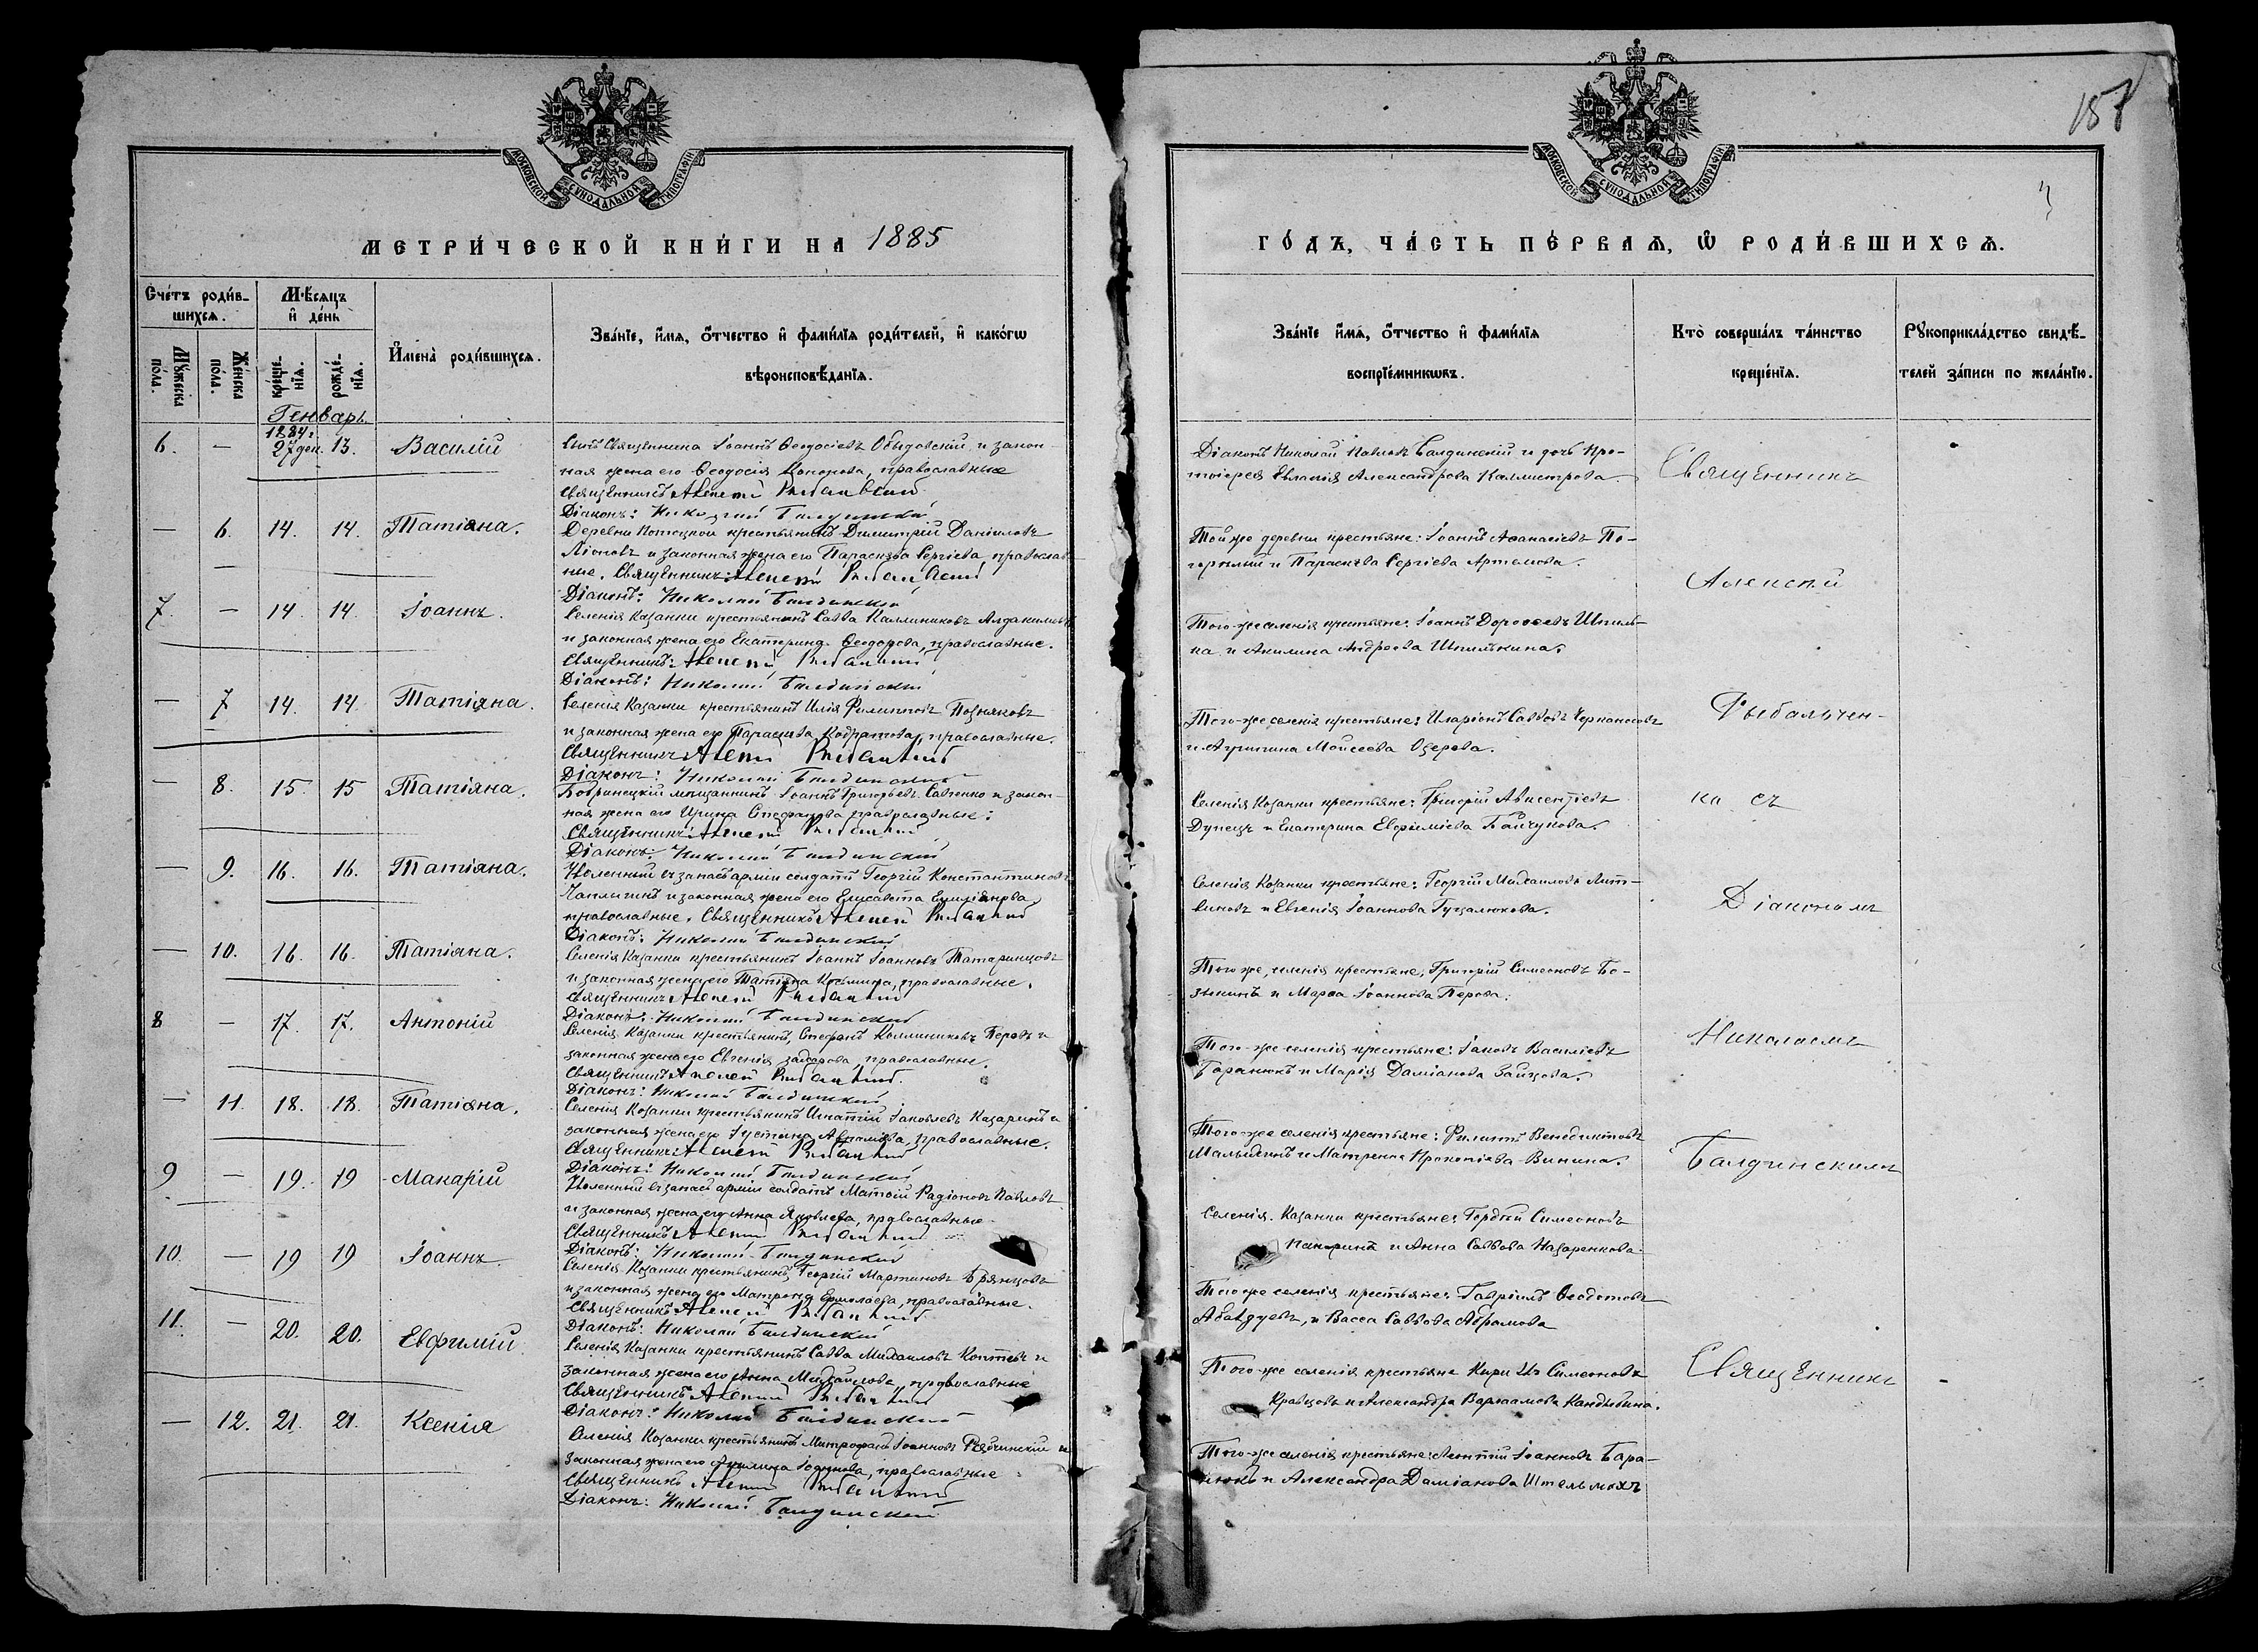 МОСКОВСКОЙ СѴНОДАЛЬНОЙ ТИПОГРАФІИ
МЕТРИ́ЧЕСКОЙ КНИ́ГИ НА 1885
Сче́тъ роди́в-
шихсѧ.
Мѣ́сѧцъ
и҆ де́нь
И҆мена̀ роди́вшихсѧ.
Зва́нїе, и҆́мѧ, ѻ҆́тчество и҆ фами́лїѧ роди́телей, и҆ како́гѡ
вѣроисповѣ́данїѧ.
Мꙋ́жеска
по́ла.
Же́нска
по́ла.
креще́-
нїѧ.
рожде́-
нїѧ.
Генварь
1884 г.
6. — 27 дек. 13. Василій
Сынъ Священника Іоаннъ Ѳеодосіевъ Обидовскій и закон-
ная жена его Ѳеодосія, православные
Священникъ Алексій
Діаконъ: Николай Балдинскій
— 6. 14. 14. Татіана.
Деревни крестьянинъ Димитрій Даніиловъ
Ліоновъ и законная жена его Параскева Сергіева православ-
ные. Священникъ: Алексій
Діаконъ: Николай Балдинскій
7. — 14. 14. Іоаннъ.
Селенія Казанки крестьянинъ Савва Каллиниковъ
и законная жена его Екатерина Ѳеодорова, православные.
Священникъ: Алексій
Діаконъ: Николай Балдинскій
— 7 14. 14. Татіана.
Селенія Казанки крестьянинъ Илія Филипповъ Позняковъ
и законная жена его Параскева Кодратова, православные.
Священникъ Алексій
Діаконъ: Николай Балдинскій
— 8. 15. 15 Татіана.
Бобринецкій мѣщанинъ Іоаннъ Григорьевъ Савченко и закон-
ная жена его Ирина Стефанова православные:
Священникъ: Алексій
Діаконъ: Николай Балдинскій
— 9. 16. 16. Татіана.
Уволенный въ запасъ арміи солдатъ Георгій Константиновъ
Чаплыгинъ и законная жена его Елисавета Емиліанова
православные. Священникъ Алексій
Діаконъ: Николай Балдинскій
— 10. 16. 16. Татіана.
Селенія Казанки крестьянинъ Іоаннъ Іоанновъ Татаринцовъ
и законная жена его Татіана Козьмина, православные.
Священникъ Алексій
Діаконъ: Николай Балдинскій
8 — 17. 17. Антоній
Селенія Казанки крестьянинъ, Стефанъ Каллиниковъ Перовъ и
законная жена его Евгенія Захарова, православные.
Священникъ Алексій
Діаконъ: Николай Балдинскій
— 11. 18. 18. Татіана.
Селенія Казанки крестьянинъ Игнатій Іаковлевъ Казаринъ и
законная жена его Іустина Аврамова, православные.
Священникъ: Алексій
Діаконъ: Николай Балдинскій
9 — 19. 19 Макарій
Уволенный въ запасъ арміи солдатъ Матѳій Радіоновъ Павловъ
и законная жена его Анна Яковлева, православные.
Священникъ Алексій
Діаконъ: Николай Балдинскій
10. — 19 19 Іоаннъ.
Селенія Казанки крестьянинъ Георгій Мартиновъ Брянцовъ
и законная жена его Матрона Ермолаева, православные.
Священникъ Алексій
Діаконъ: Николай Балдинскій
11. — 20. 20. Евфимій.
Селенія Казанки крестьянинъ Савва Михаиловъ Коптевъ и
законная жена его Анна Михайлова, православные
Священникъ Алексій
Діаконъ: Николай Балдинскій
— 12. 21. 21. Ксенія
Селенія Казанки крестьянинъ Митрофанъ Іоанновъ Рябчинскій и
законная жена его Акилина, православные
Священникъ Алексій
Діаконъ: Николай Балдинскій
157
3
МОСКОВСКОЙ СѴНОДАЛЬНОЙ ТИПОГРАФІИ
ГО́ДЪ, ЧА́СТЬ ПЕ́РВАѦ, Ѡ҆ РОДИ́ВШИХСѦ.
Зва́нїе и҆́мѧ, ѻ҆́тчество и҆ фами́лїѧ
воспрїе́мникѡвъ.
Кто̀ соверша́лъ та́инство
креще́нїѧ.
Рꙋкоприкла́дство свидѣ́-
телей за́писи по жела́нїю.
Діаконъ Николай Павловъ Балдинскій и дочь Про-
тоіерея Евлампія Александрова Каллистрова
Той же деревни крестьяне: Іоаннъ Аѳанасіевъ По-
горѣлый и Параскева Сергіева Артемова.
Того-же селенія крестьяне: Іоаннъ Дороѳеевъ Шпиль-
ка и Акилина Андреева Шпилькина.
Того-же селенія крестьяне: Иларіонъ Саввовъ
и Агрипина Моисеева Озерова.
Селенія Казанки крестьяне: Григорій Авксентіевъ
Дунецъ и Екатерина Евфиміева Байчукова.
Селенія Казанки крестьяне: Георгій Михаиловъ Лит-
виновъ и Евгенія Іоаннова Гуцалюкова.
Того же, селенія крестьяне, Григорій Симеоновъ Бо-
зыкинъ и Марѳа Іоаннова Перова.
Того-же селенія крестьяне: Іаковъ Василіевъ
Баранюкъ и Марія Даміанова Зайцова.
Того-же селенія крестьяне: Филиппъ Венедиктовъ
Малыхинъ и Матрона Прокопіева Винина.
Селенія. Казанки крестьяне: Гордѣй Симеоновъ
и Анна Саввова Назаренкова.
Того же селенія крестьяне: Гавріилъ Ѳеодотовъ
и Васса Саввова Абрамова
Того-же селенія крестьяне Кирилъ Симеоновъ
Кравцовъ и Александра Варлаамова Кандыбина.
Того-же селенія крестьяне: Леонтій Іоанновъ Бара-
нюкъ и Александра Даміанова Штельмахъ
Священникъ
Алексѣй
Рыбальчен-
ко съ
Діакономъ
Николаемъ
Балдинскимъ
Священникъ